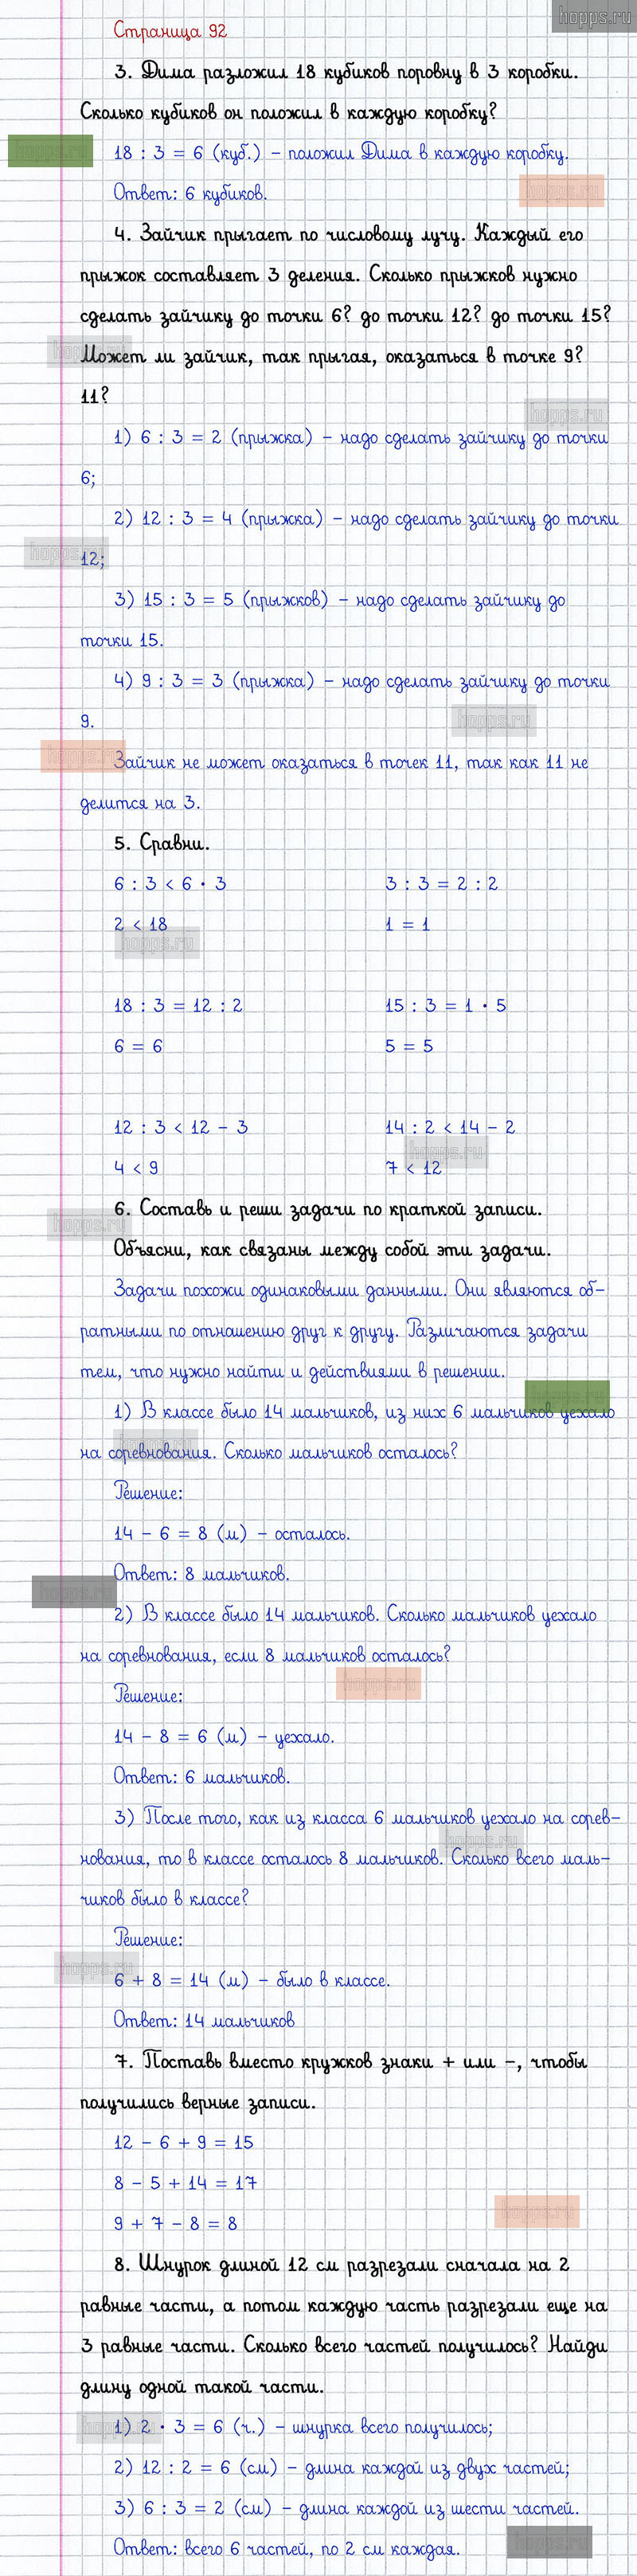 hopps.ru
Страница 92
3. Дима разложил 18 кубиков поровну в 3 коробки.
Сколько кубиков он положил в каждую коробку?
hopps.ru
18 : 3 = 6 (куб.) – положил Дима в каждую коробку.
hopps.ru
Ответ: 6 кубиков.
4. Зайчик прыгает по числовому лучу. Каждый его
прыжок составляет 3 деления. Сколько прыжков нужно
сделать зайчику до точки 6? до точки 12? до точки 15?
hopps.ru
Может ли зайчик, так прыгая, оказаться в точке 9?
11?
hopps.ru
1) 6 : 3 = 2 (прыжка) – надо сделать зайчику до точки
6;
2) 12 : 3 = 4 (прыжка) – надо сделать зайчику до точки
hopps.ru
12;
3) 15 : 3 = 5 (прыжков) – надо сделать зайчику до
точки 15.
4) 9 : 3 = 3 (прыжка) – надо сделать зайчику до точки
9.
hopps.ru
hopps.ru
Зайчик не может оказаться в точек 11, так как 11 не
делится на 3.
5. Сравни.
6 : 3 < 6 · 3 3 : 3 = 2 : 2
2 < 18 1 = 1
hopps.ru
18 : 3 = 12 : 2 15 : 3 = 1 · 5
6 = 6 5 = 5
12 : 3 < 12 – 3 14 : 2 < 14 – 2
hopps.ru
4 < 9 7 < 12
6. Составь и реши задачи по краткой записи.
hopps.ru
Объясни, как связаны между собой эти задачи.
Задачи похожи одинаковыми данными. Они являются об–
ратными по отношению друг к другу. Различаются задачи
тем, что нужно найти и действиями в решении.
1) В классе было 14 мальчиков, из них 6 мальчиков уехало
hopps.ru
на соревнования. Сколько мальчиков осталось?
Решение:
14 – 6 = 8 (м) – осталось.
Ответ: 8 мальчиков.
hopps.ru
2) В классе было 14 мальчиков. Сколько мальчиков уехало
на соревнования, если 8 мальчиков осталось?
hopps.ru
Решение:
14 – 8 = 6 (м) – уехало.
Ответ: 6 мальчиков.
3) После того, как из класса 6 мальчиков уехало на сорев–
hopps.ru
нования, то в классе осталось 8 мальчиков. Сколько всего маль–
чиков было в классе?
Решение:
hopps.ru
6 + 8 = 14 (м) – было в классе.
Ответ: 14 мальчиков
7. Поставь вместо кружков знаки + или –, чтобы
получились верные записи.
12 – 6 + 9 = 15
8 – 5 + 14 = 17
hopps.ru
9 + 7 – 8 = 8
8. Шнурок длиной 12 см разрезали сначала на 2
равные части, а потом каждую часть разрезали еще на
3 равные части. Сколько всего частей получилось? Найди
длину одной такой части.
hopps.ru
1) 2 · 3 = 6 (ч.) – шнурка всего получилось;
2) 12 : 2 = 6 (см) – длина каждой из двух частей;
3) 6 : 3 = 2 (см) – длина каждой из шести частей.
hopps.ru
Ответ: всего 6 частей, по 2 см каждая.